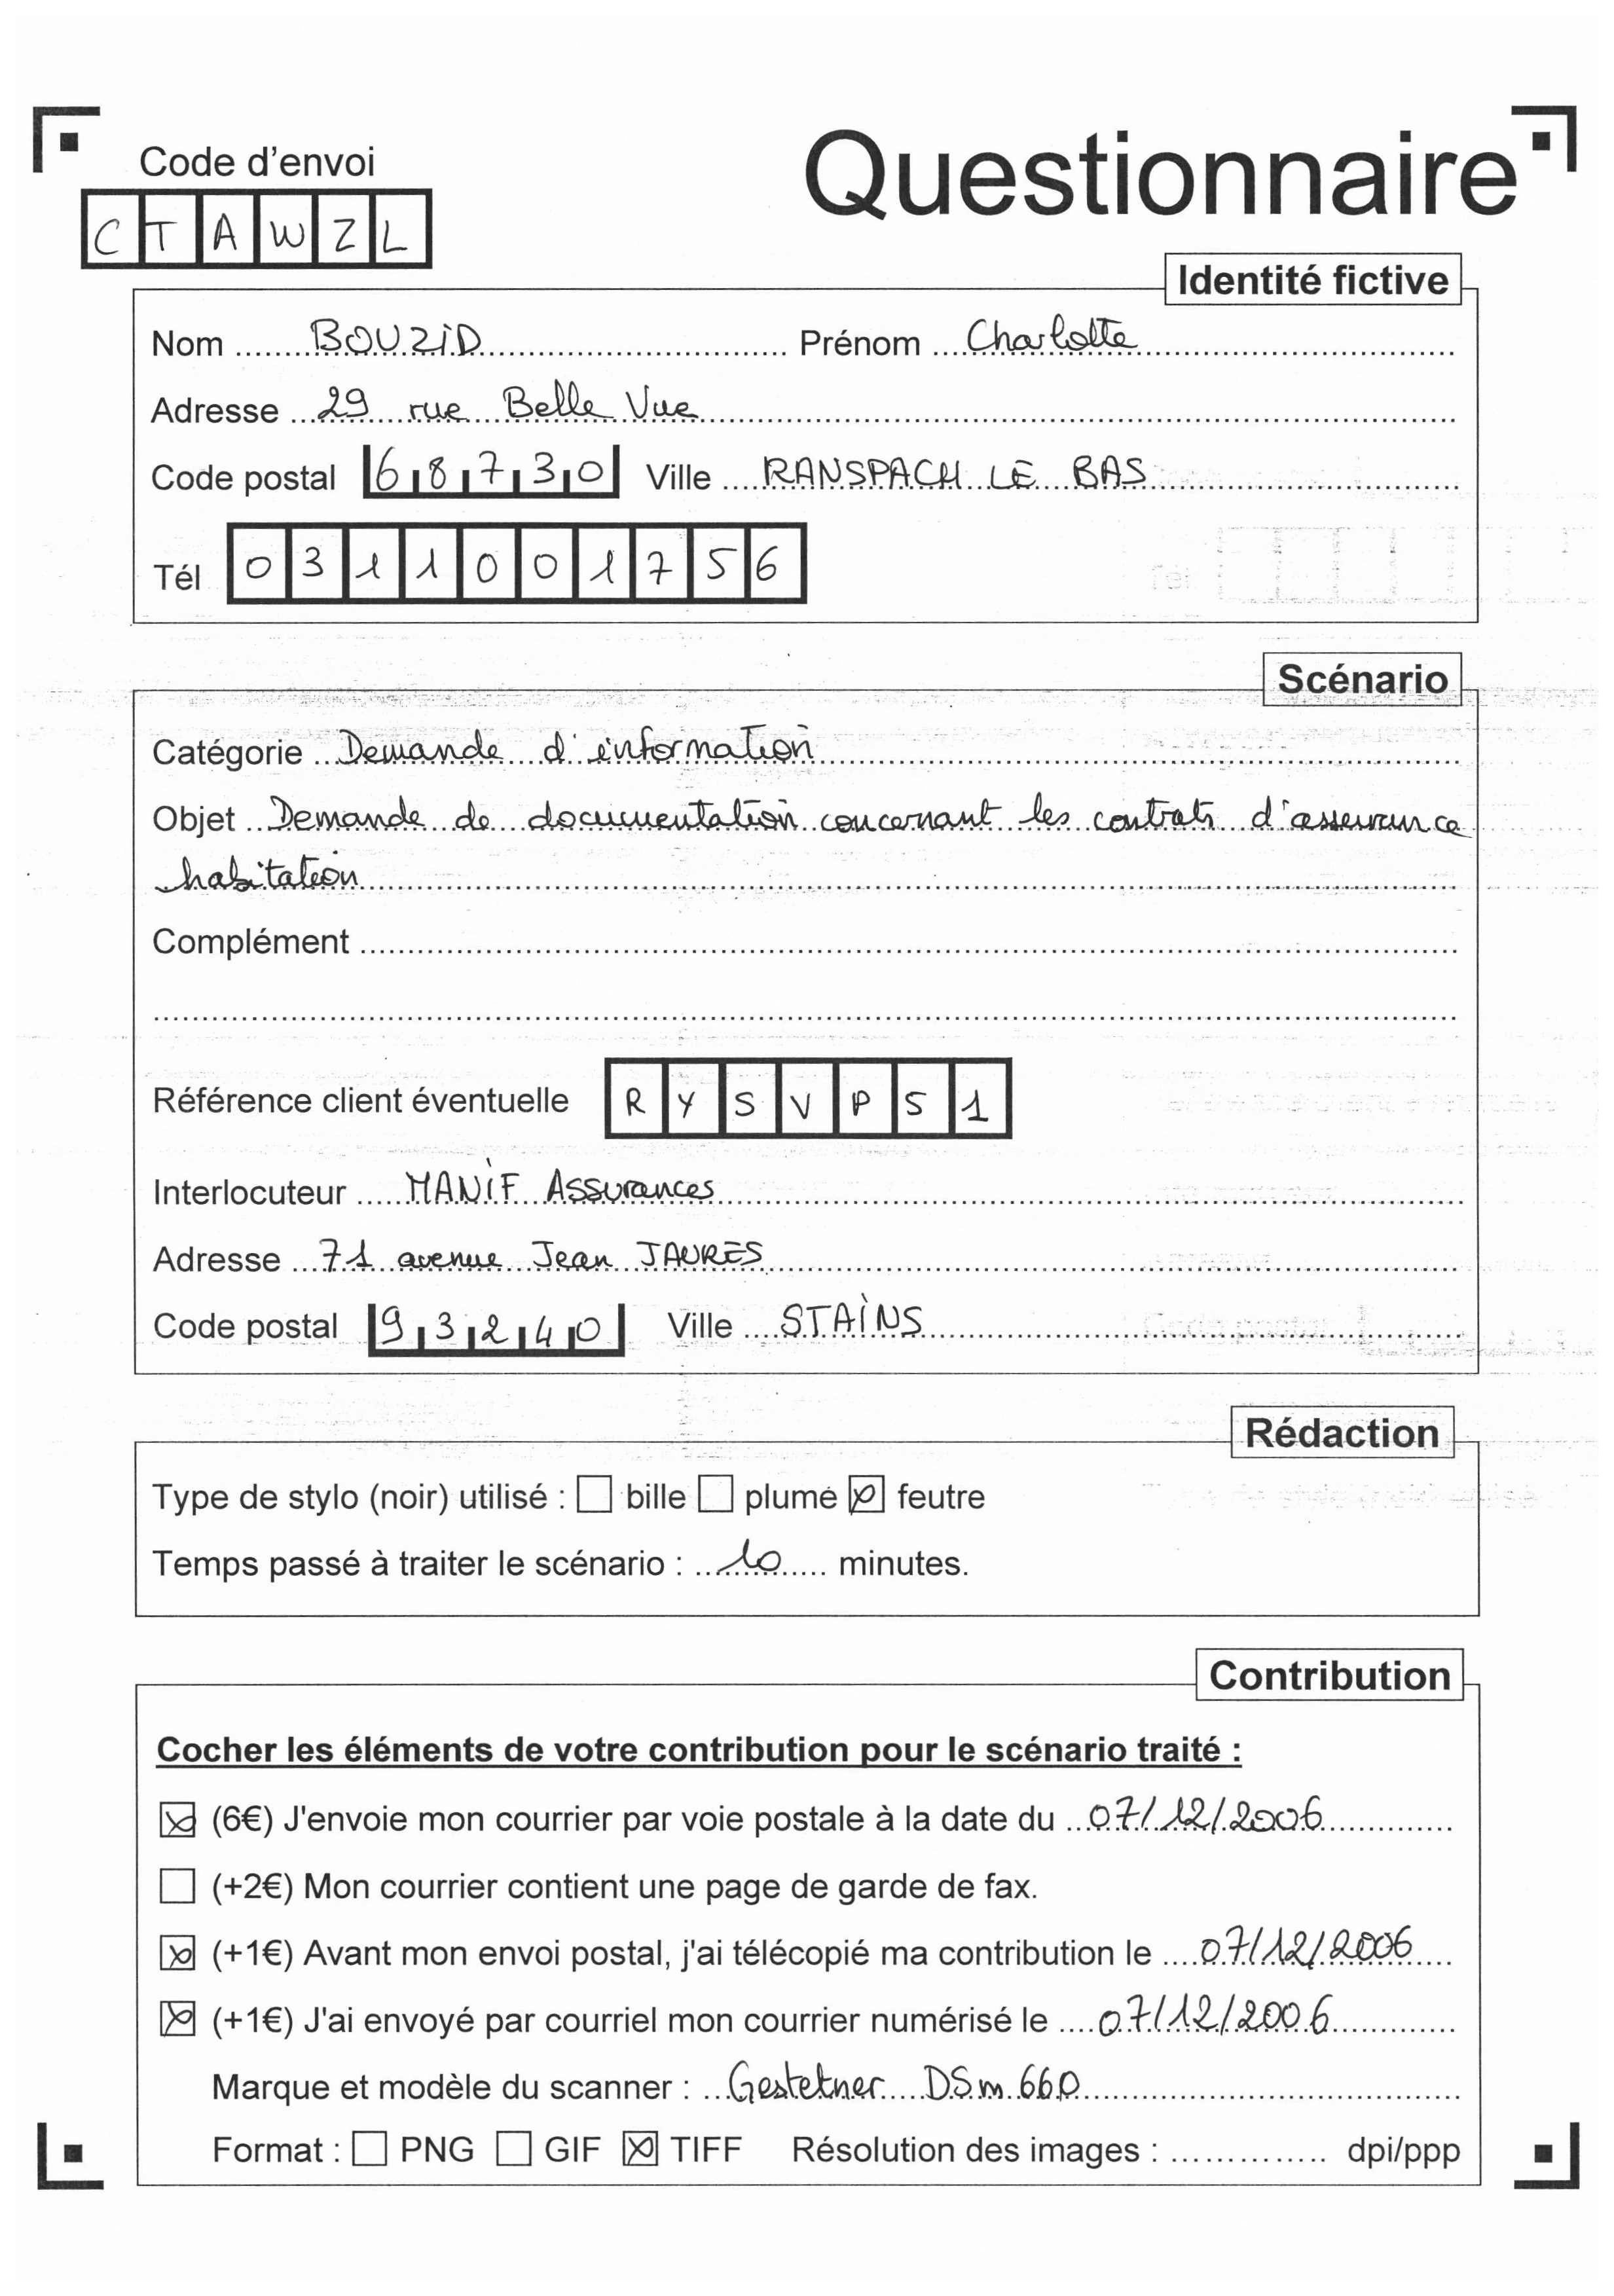 Code d'envoi
Questionnaire
C T A W Z L
Identité fictive
Nom BOUZID Prénom Charlotte
Adresse 29 rue Belle Vue
Code postal 68730 Ville RANSPACH LE BAS
Tél 0311001756
Scénario
Catégorie Demande d'information
Objet Demande de documentation concernant les contrats d'assurance
habitation
Complément
Référence client éventuelle RYSVP51
Interlocuteur MANIF Assurances
Adresse 71 avenue Jean JAURES
Code postal 93240 Ville STAINS
Rédaction
Type de stylo (noir) utilisé : bille plume feutre
Temps passé à traiter le scénario : 10 minutes.
Contribution
Cocher les éléments de votre contribution pour le scénario traité :
(6€) J'envoie mon courrier par voie postale à la date du 07/12/2006
(+2€) Mon courrier contient une page de garde de fax.
(+1€) Avant mon envoi postal, j'ai télécopié ma contribution le 07/12/2006
(+1€) J'ai envoyé par courriel mon courrier numérisé le 07/12/2006
Marque et modèle du scanner : Gestetner DSm 660
Format : PNG GIF TIFF Résolution des images : dpi/ppp